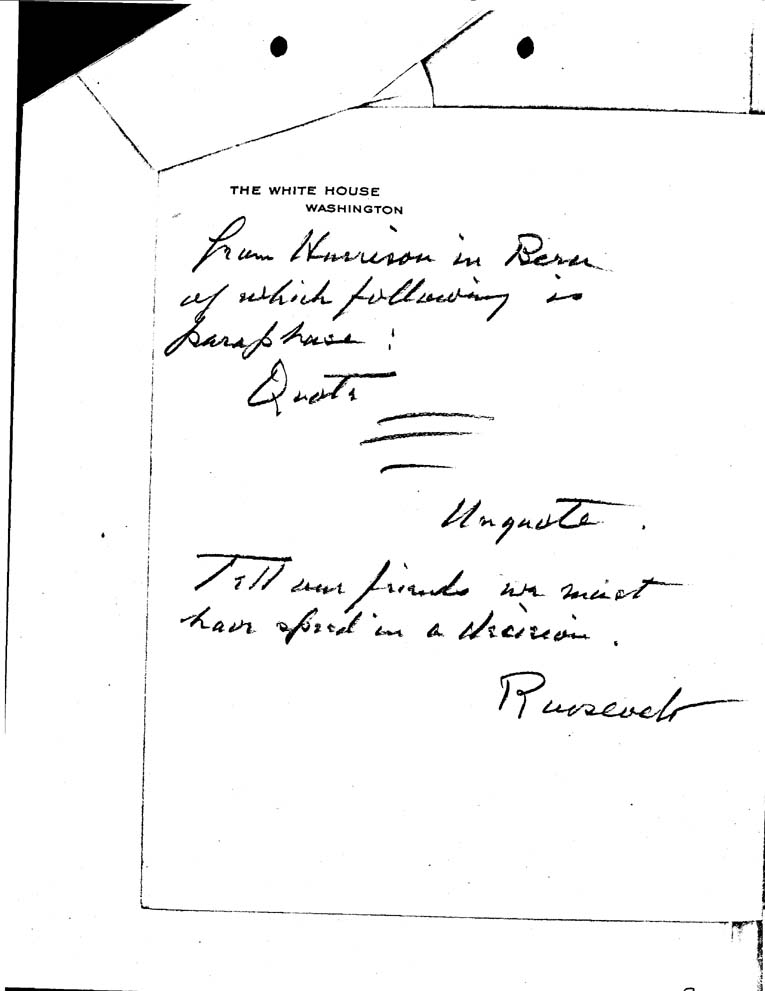 THE WHITE HOUSE
WASHINGTON
from Harrison in Bern
of which following is
paraphase :
Quote
Unquote .
Tell our friends we must
have speed in a decision .
Roosevelt